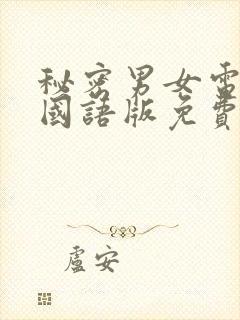 秘密男女電
國語版免費
盧安